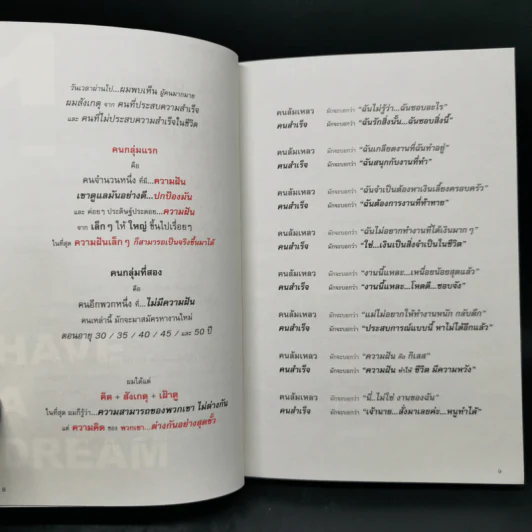 1
วันเวลาผ่านไป...ผมพบเห็น ผู้คนมากมาย
ผมสังเกตุ จาก คนที่ประสบความสำเร็จ
และ คนที่ไม่ประสบความสำเร็จในชีวิต
คนกลุ่มแรก
คือ
คนจำนวนหนึ่ง ที่มี...ความฝัน
เขาดูแลมันอย่างดี...ปกป้องมัน
และ ค่อยๆ ประดิษฐ์ประดอย...ความฝัน
จาก เล็กๆ ให้ ใหญ่ ขึ้นไปเรื่อยๆ
ในที่สุด ความฝันเล็กๆ ก็สามารถเป็นจริงขึ้นมาได้
คนกลุ่มที่สอง
คือ
คนอีกพวกหนึ่ง ที่...ไม่มีความฝัน
คนเหล่านี้ มักจะมาสมัครหางานใหม่
ตอนอายุ 30 / 35 / 40 / 45 / และ 50 ปี
ผมได้แต่
คิด + สังเกตุ + เฝ้าดู
ในที่สุด ผมก็รู้ว่า...ความสามารถของพวกเขา ไม่ต่างกัน
แต่ ความคิด ของ พวกเขา...ต่างกันอย่างสุดขั้ว
HAVE
A
DREAM
8
คนล้มเหลว มักจะบอกว่า "ฉันไม่รู้ว่า...ฉันชอบอะไร"
คนสำเร็จ มักจะบอกว่า "ฉันรักสิ่งนั้น...ฉันชอบสิ่งนี้"
คนล้มเหลว มักจะบอกว่า "ฉันเกลียดงานที่ฉันทำอยู่"
คนสำเร็จ มักจะบอกว่า "ฉันสนุกกับงานที่ทำ"
คนล้มเหลว มักจะบอกว่า "ฉันจำเป็นต้องหาเงินเลี้ยงครอบครัว"
คนสำเร็จ มักจะบอกว่า "ฉันต้องการงานที่ท้าทาย"
คนล้มเหลว มักจะบอกว่า "ฉันไม่อยากทำงานที่ได้เงินมากๆ"
คนสำเร็จ มักจะบอกว่า "ใช่...เงินเป็นสิ่งจำเป็นในชีวิต"
คนล้มเหลว มักจะบอกว่า "งานนี้แหละ...เหนื่อยน้อยสุดแล้ว"
คนสำเร็จ มักจะบอกว่า "งานนี้แหละ...โหดดี...ชอบจัง"
คนล้มเหลว มักจะบอกว่า "แม่ไม่อยากให้ทำงานหนัก กลับดึก"
คนสำเร็จ มักจะบอกว่า "ประสบการณ์แบบนี้ หาไม่ได้อีกแล้ว"
คนล้มเหลว มักจะบอกว่า "ความฝัน คือ กิเลส"
คนสำเร็จ มักจะบอกว่า "ความฝัน ทำให้ ชีวิต มีความหวัง"
คนล้มเหลว มักจะบอกว่า "นี่..ไม่ใช่ งานของฉัน"
คนสำเร็จ มักจะบอกว่า "เจ้านาย...สั่งมาเลยค่ะ...หนูทำได้"
9